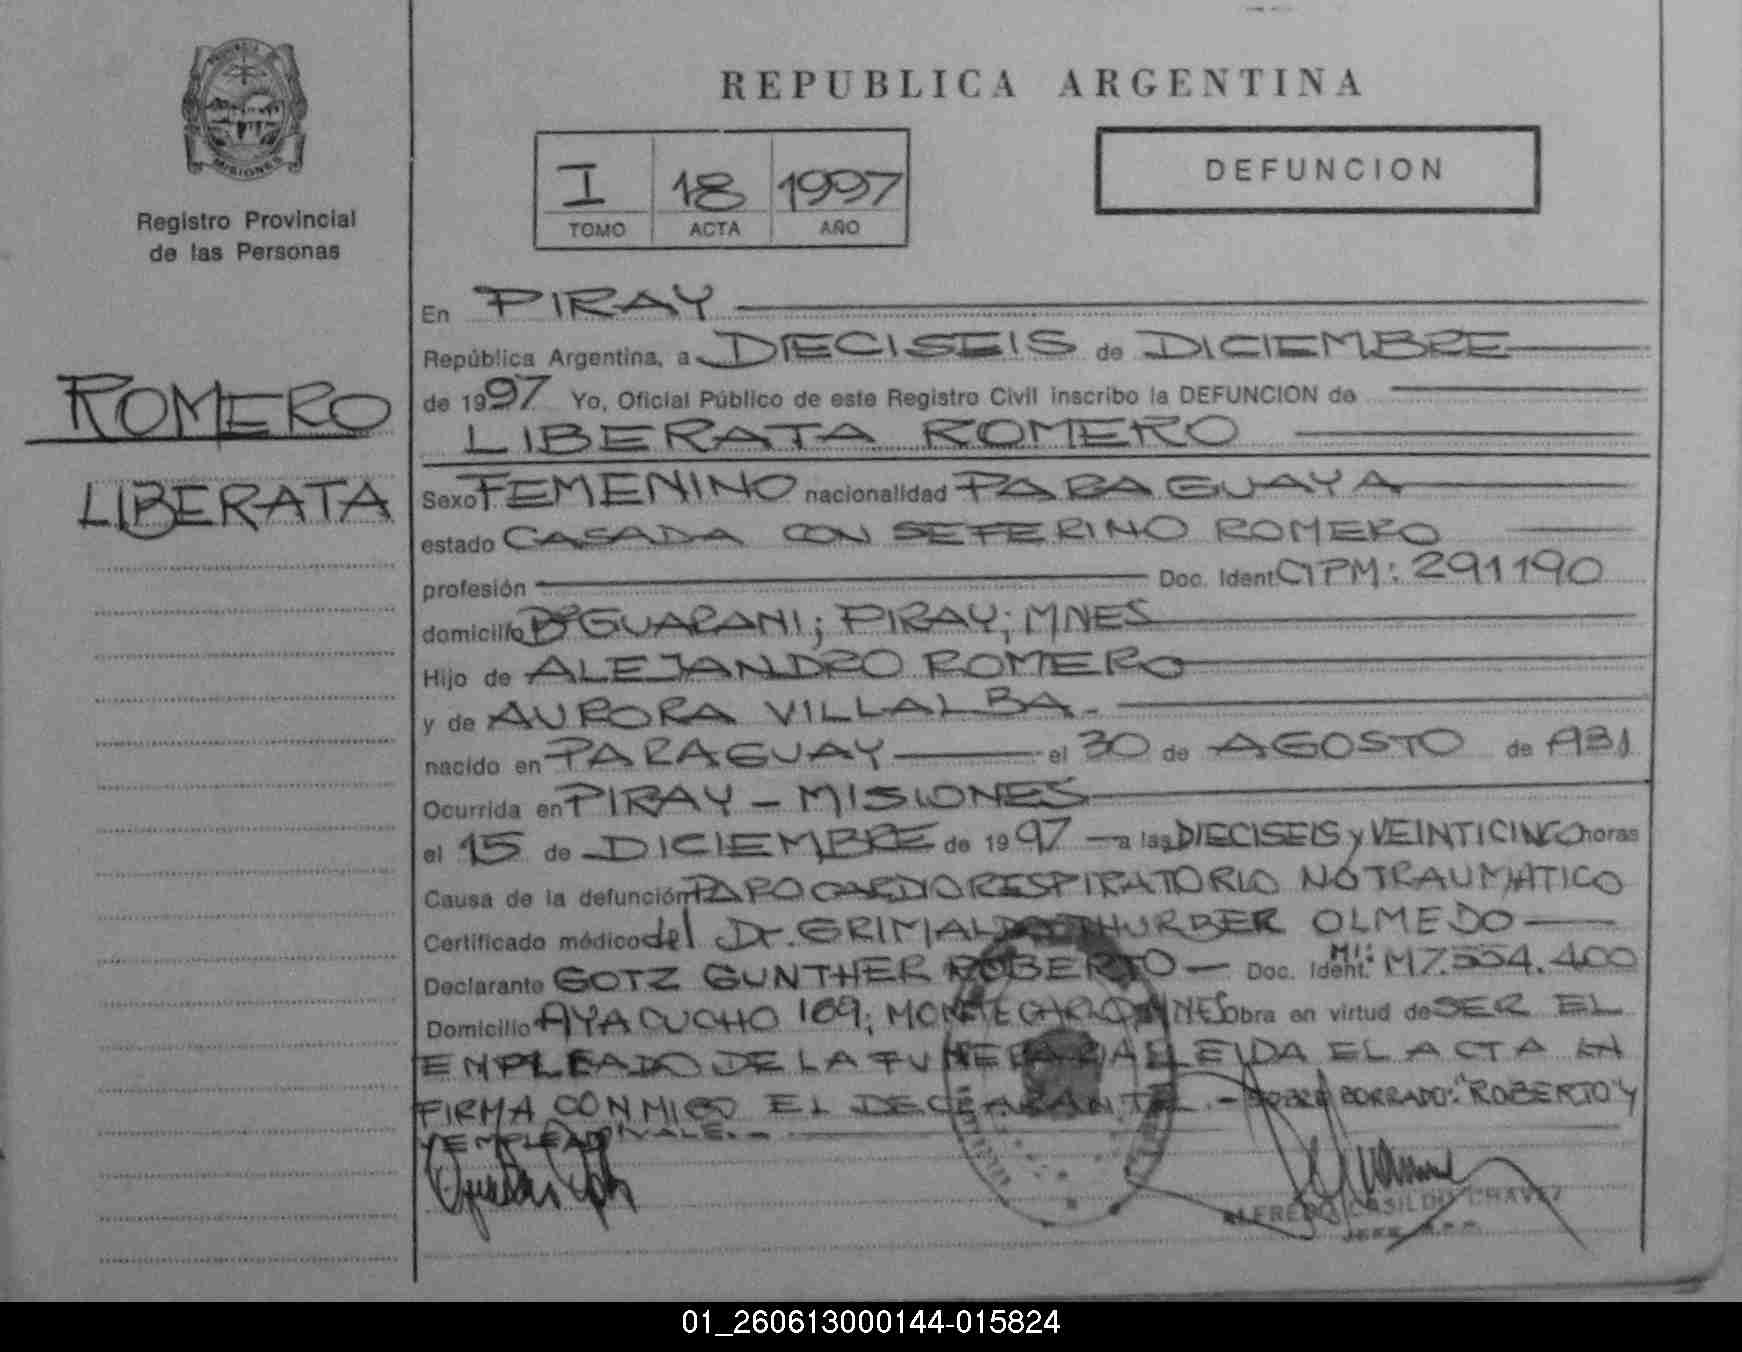 PROVINCIA
MISIONES
Registro Provincial
de las Personas
ROMERO
LIBERATA
REPUBLICA ARGENTINA
I 18 1997
TOMO ACTA AÑO
DEFUNCION
En PIRAY
República Argentina, a DIECISEIS de DICIEMBRE
de 1997 Yo, Oficial Público de este Registro Civil inscribo la DEFUNCION de
LIBERATA ROMERO
Sexo FEMENINO nacionalidad PARAGUAYA
estado CASADA CON SEFERINO ROMERO
profesión Doc. Ident. CIPM: 291190
domicilio Bº GUARANI; PIRAY; MNES
Hijo de ALEJANDRO ROMERO
y de AURORA VILLALBA.
nacido en PARAGUAY el 30 de AGOSTO de
Ocurrida en PIRAY - MISIONES
el 15 de DICIEMBRE de 1997 a las DIECISEIS y VEINTICINCO horas
Causa de la defunción PARO CARDIORESPIRATORIO NO TRAUMATICO
Certificado médico del Dr. GRIMALDO THURBER OLMEDO
Declarante GOTZ GUNTHER ROBERTO Doc. Ident. MI: M7.554.400
Domicilio AYACUCHO 169; MONTECARLO MNES Obra en virtud de SER EL
EMPLEADO DE LA FUNERARIA LEIDA EL ACTA LA
FIRMA CONMIGO EL DECLARANTE.- SOBRE BORRADO: "ROBERTO" Y
"EMPLEADO" VALE.-
ALFREDO CASILDO CHAVEZ
JEFE R.P.P.
01_260613000144-015824